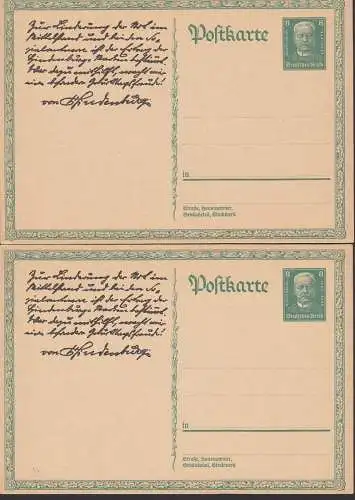 Zur Linderung der Not im
Mittelstand und bei den So-
zialrentnern ist der Ertrag der
Hindenburg Marken bestimmt.
Wer dazu mithilft, macht mir
eine besondere Geburtstagsfreude!
von Hindenburg
Postkarte
8 8
Deutsches Reich
in
Straße, Hausnummer,
Gebäudeteil, Stockwerk
Zur Linderung der Not im
Mittelstand und bei den So-
zialrentnern ist der Ertrag der
Hindenburg Marken bestimmt.
Wer dazu mithilft, macht mir
eine besondere Geburtstagsfreude!
von Hindenburg
Postkarte
8 8
Deutsches Reich
in
Straße, Hausnummer,
Gebäudeteil, Stockwerk